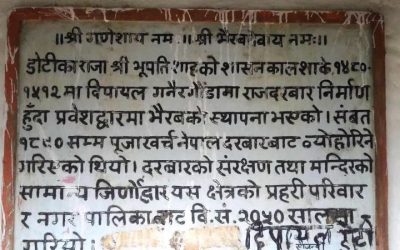 ॥श्री गणेशाय नम ॥ श्री भैरबबाय नमः॥
डोटीका राजा श्री भूपति शाहको शासन कालशाके, १४८०-
१५१२ मा दिपायल गनैरगौंडामा राजदरबार निर्माण
हुँदा प्रवेशद्वारमा भैरबको स्थापना भएको। संबत
१८९० सम्म पूजाखर्च नेपाल दरबारबाट व्योहोरिने
गरिएको थियो। दरबारको संरक्षण तथा मन्दिरको
सामान्य जिर्णोद्वार यस क्षेत्रको प्रहरी परिवार
र नगर पालिकाबाट वि.सं. २०५० सालमा
गरियो। दिपायल डोटी